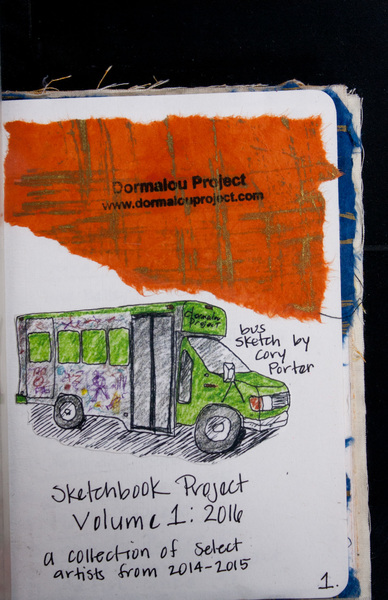 Dormalou Project
www.dormalouproject.com
bus
sketch by
Cory
Porter
Sketchbook Project
Volume 1: 2016
a collection of select
artists from 2014-2015
1.